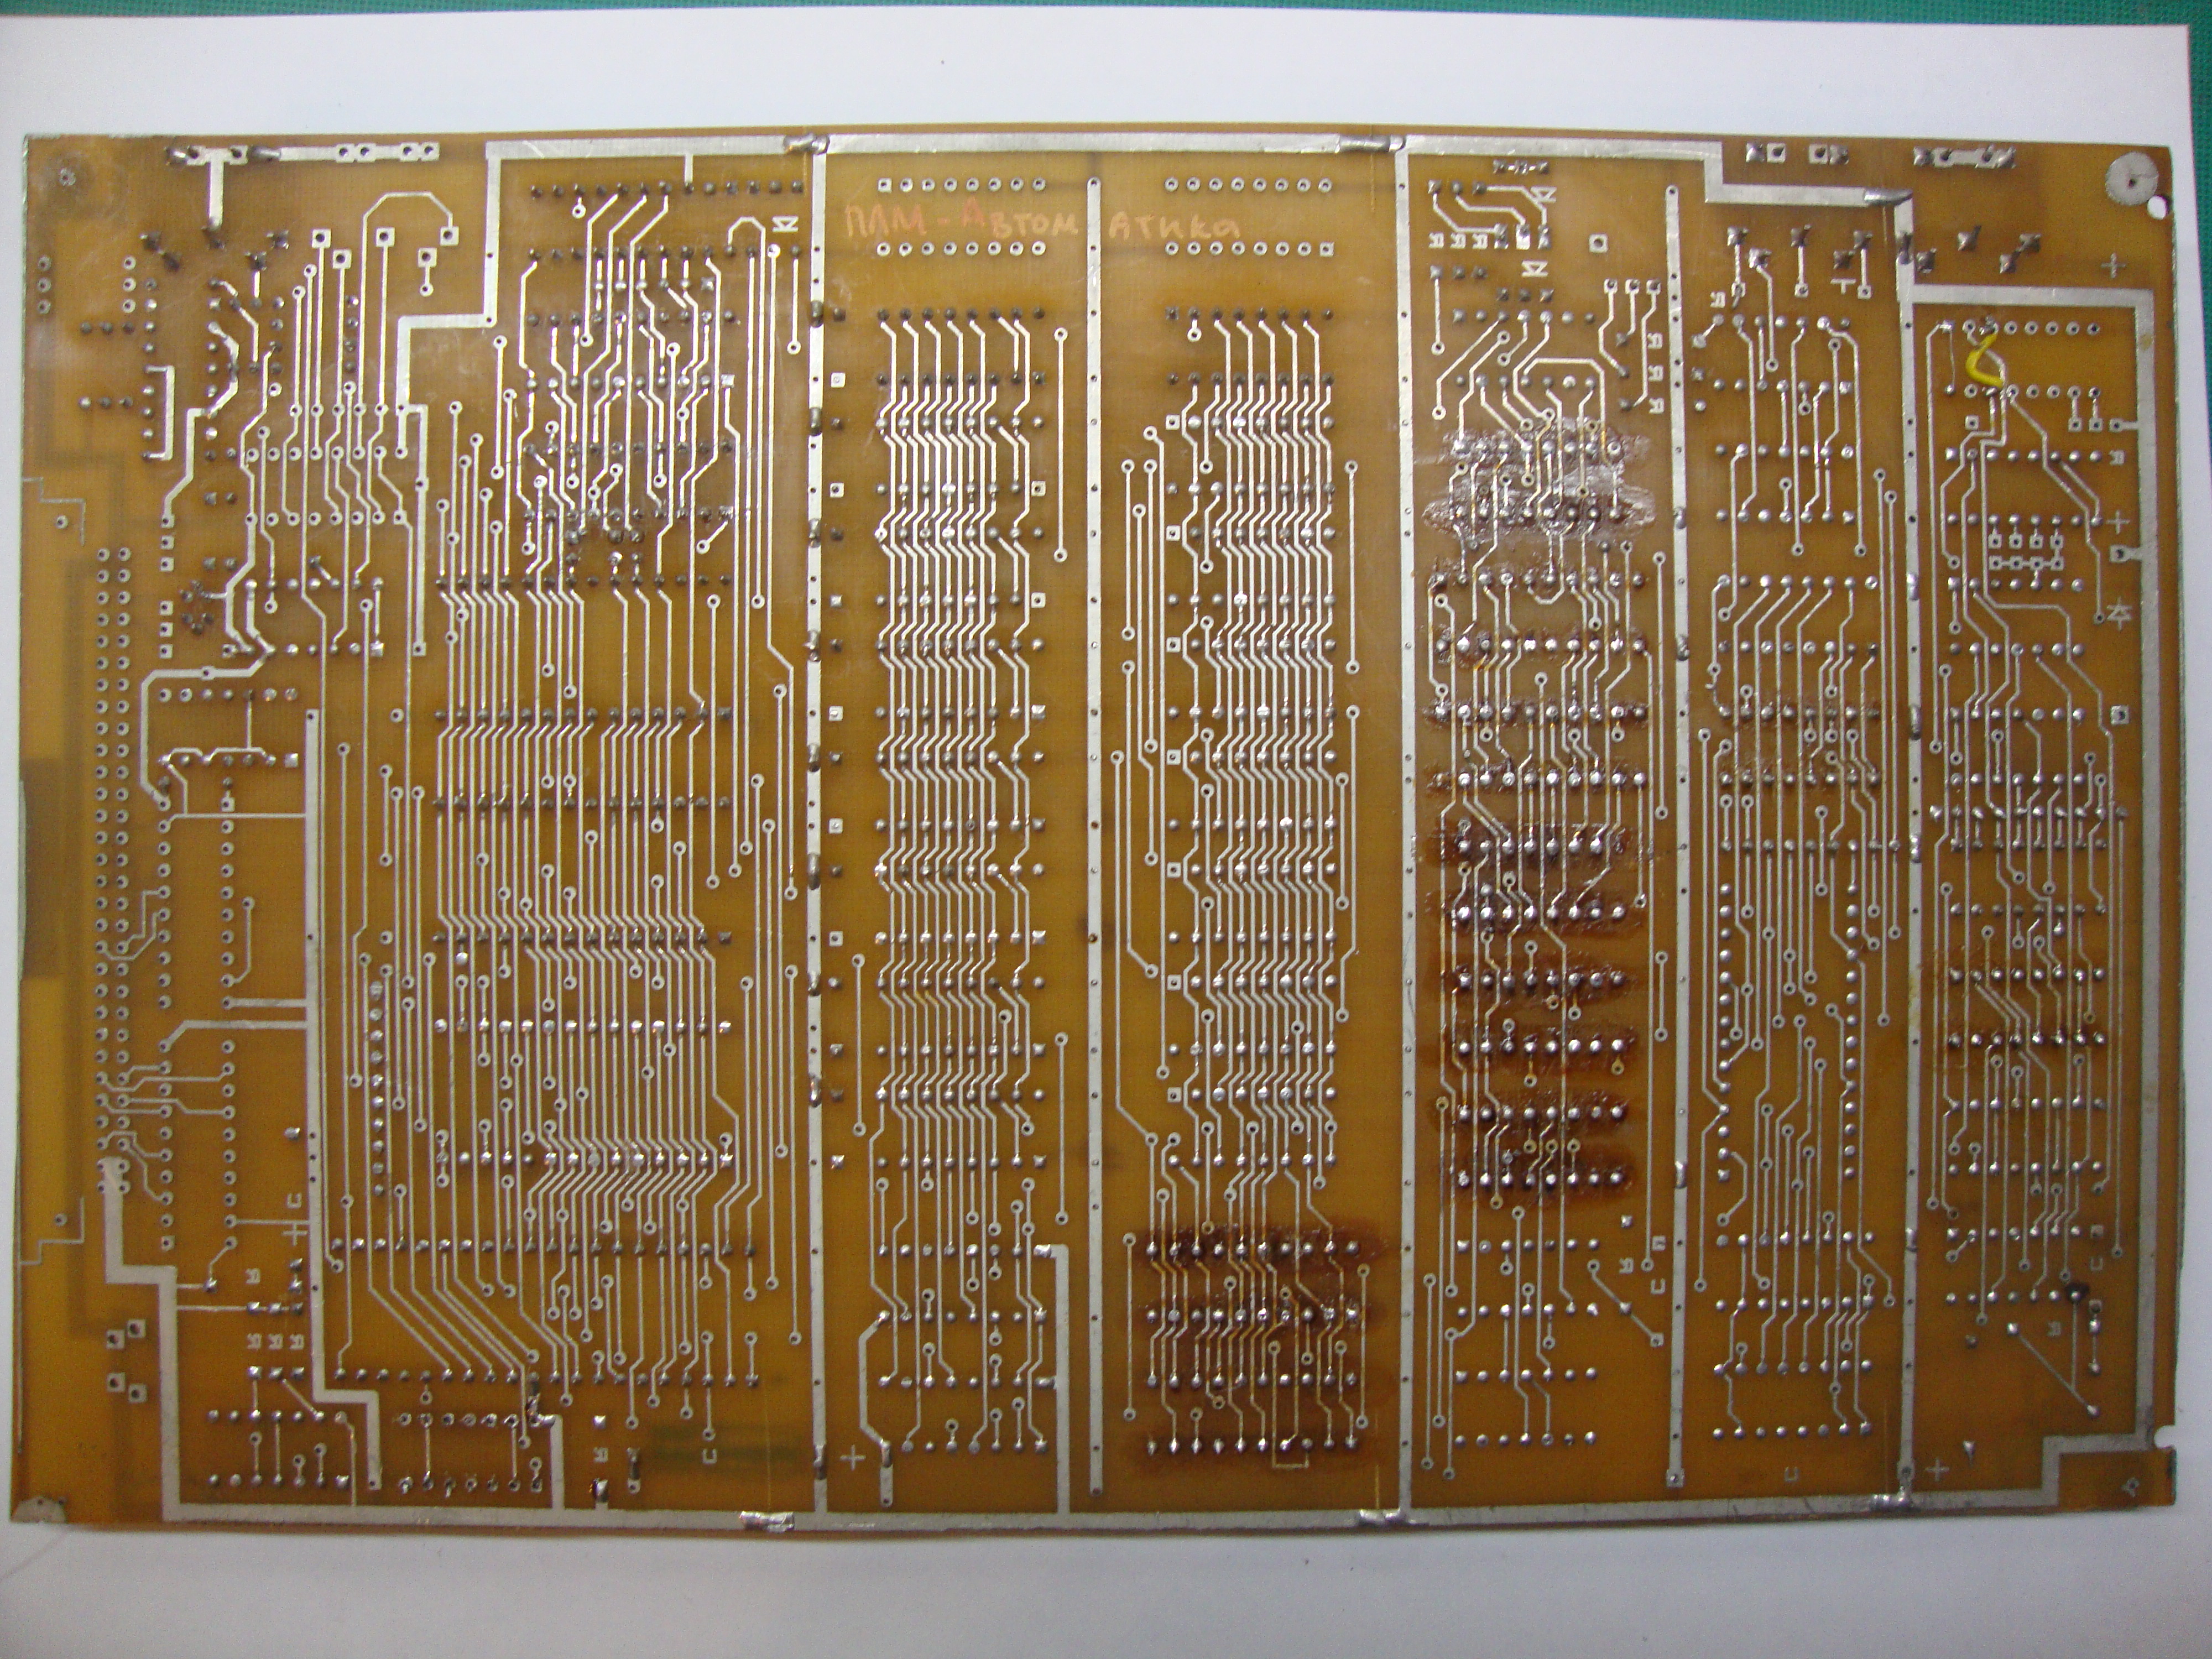 ПЛМ - Автоматика